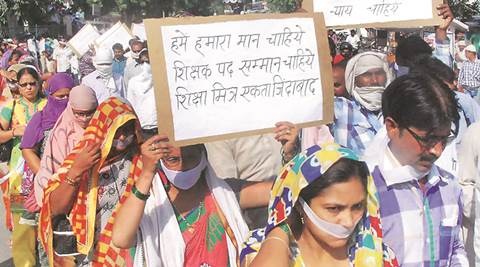 न्याय चाहिये
हमे हमारा मान चाहिये
शिक्षक पद सम्मान चाहिये
शिक्षा मित्र एकता जिंदाबाद